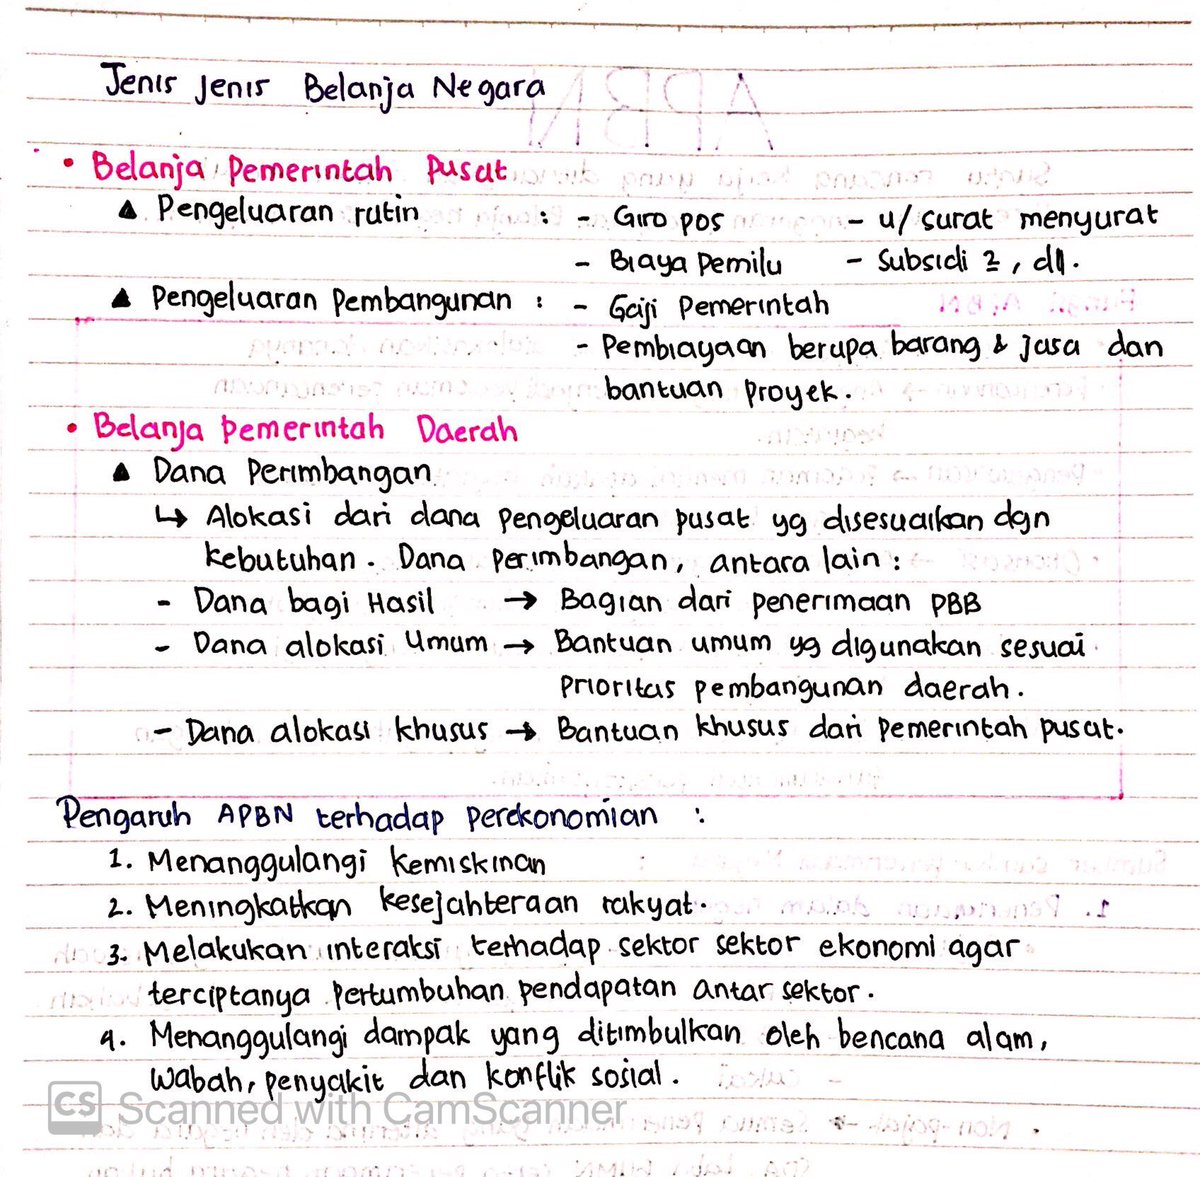 Jenis Jenis Belanja Negara
• Belanja Pemerintah Pusat
▲ Pengeluaran rutin : - Giro pos - u/ surat menyurat
- Biaya Pemilu - Subsidi 2, dll.
▲ Pengeluaran Pembangunan : - Gaji Pemerintah
- Pembiayaan berupa barang & jasa dan
bantuan proyek.
• Belanja Pemerintah Daerah
▲ Dana Perimbangan
↳ Alokasi dari dana pengeluaran pusat yg disesuaikan dgn
kebutuhan. Dana perimbangan, antara lain :
- Dana bagi Hasil → Bagian dari penerimaan PBB
- Dana alokasi Umum → Bantuan umum yg digunakan sesuai
prioritas pembangunan daerah.
- Dana alokasi khusus → Bantuan khusus dari pemerintah pusat.
Pengaruh APBN terhadap perekonomian :
1. Menanggulangi kemiskinan
2. Meningkatkan kesejahteraan rakyat.
3. Melakukan interaksi terhadap sektor sektor ekonomi agar
terciptanya pertumbuhan pendapatan antar sektor.
4. Menanggulangi dampak yang ditimbulkan oleh bencana alam,
wabah, penyakit dan konflik sosial.
CS Scanned with CamScanner